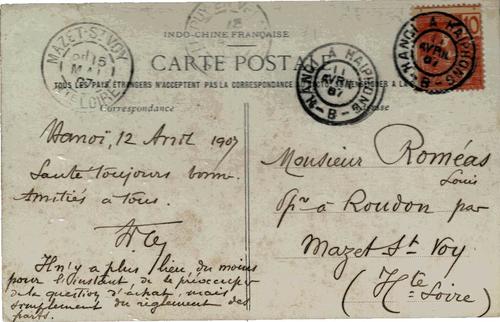 INDO-CHINE FRANÇAISE
CARTE POSTALE
TOUS LES PAYS ÉTRANGERS N'ACCEPTENT PAS LA CORRESPONDANCE
Correspondance
MAZET-ST-VOY
15
MAI
07
HTE LOIRE
HANOI A HAIPHONG
AVRIL
07
B
10
HANOI A HAIPHONG
AVRIL
07
B
Hanoï, 12 Avril 1907
Santé toujours bonne.
Amitiés à tous.
Il n'y a plus lieu, du moins
pour l'instant, de se préoccuper
de la question d'achat, mais
simplement du règlement des
parts.
Monsieur Roméas
Louis
à Roudon par
Mazet St Voy
(Hte
Loire)